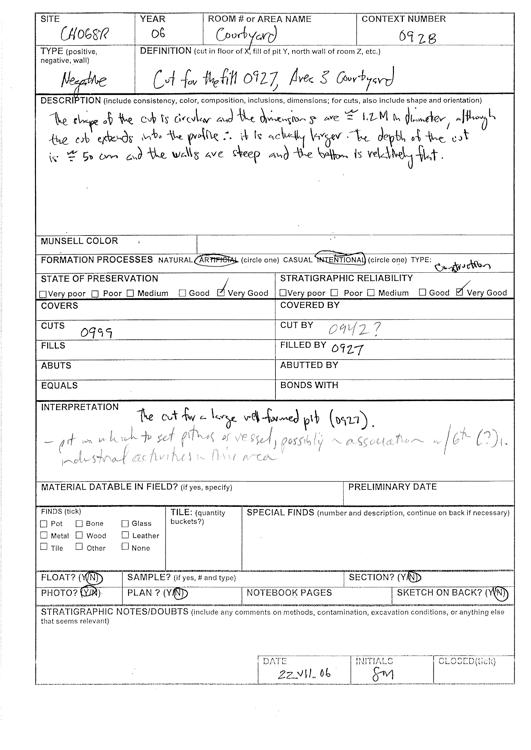 SITE YEAR ROOM # or AREA NAME CONTEXT NUMBER
CH06SR 06 Courtyard 0928
TYPE (positive, negative, wall) DEFINITION (cut in floor of X, fill of pit Y, north wall of room Z, etc.)
Negative Cut for the fill 0927, Area 3 Courtyard
DESCRIPTION (include consistency, color, composition, inclusions, dimensions; for cuts, also include shape and orientation)
The shape of the cut is circular and the dimensions are ≈ 1.2 M in diameter, although
the cut extends into the profile ∴ it is actually larger. The depth of the cut
is ≈ 50 cm and the walls are steep and the bottom is relatively flat.
MUNSELL COLOR
FORMATION PROCESSES NATURAL ARTIFICIAL (circle one) CASUAL INTENTIONAL (circle one) TYPE: Construction
STATE OF PRESERVATION STRATIGRAPHIC RELIABILITY
☐ Very poor ☐ Poor ☐ Medium ☐ Good ☑ Very Good ☐ Very poor ☐ Poor ☐ Medium ☐ Good ☑ Very Good
COVERS COVERED BY
CUTS 0999 CUT BY 0942?
FILLS FILLED BY 0927
ABUTS ABUTTED BY
EQUALS BONDS WITH
INTERPRETATION
The cut for a large well-formed pit (0927).
- pit in which to set pithos or vessel, possibly in association w/ 6th (?)
industrial activities in this area
MATERIAL DATABLE IN FIELD? (if yes, specify) PRELIMINARY DATE
FINDS (tick) TILE: (quantity buckets?) SPECIAL FINDS (number and description, continue on back if necessary)
☐ Pot ☐ Bone ☐ Glass
☐ Metal ☐ Wood ☐ Leather
☐ Tile ☐ Other ☐ None
FLOAT? (Y/N) SAMPLE? (if yes, # and type) SECTION? (Y/N)
PHOTO? (Y/N) PLAN ? (Y/N) NOTEBOOK PAGES SKETCH ON BACK? (Y/N)
STRATIGRAPHIC NOTES/DOUBTS (include any comments on methods, contamination, excavation conditions, or anything else
that seems relevant)
DATE INITIALS CLOSED(tick)
22.VII.06 SM